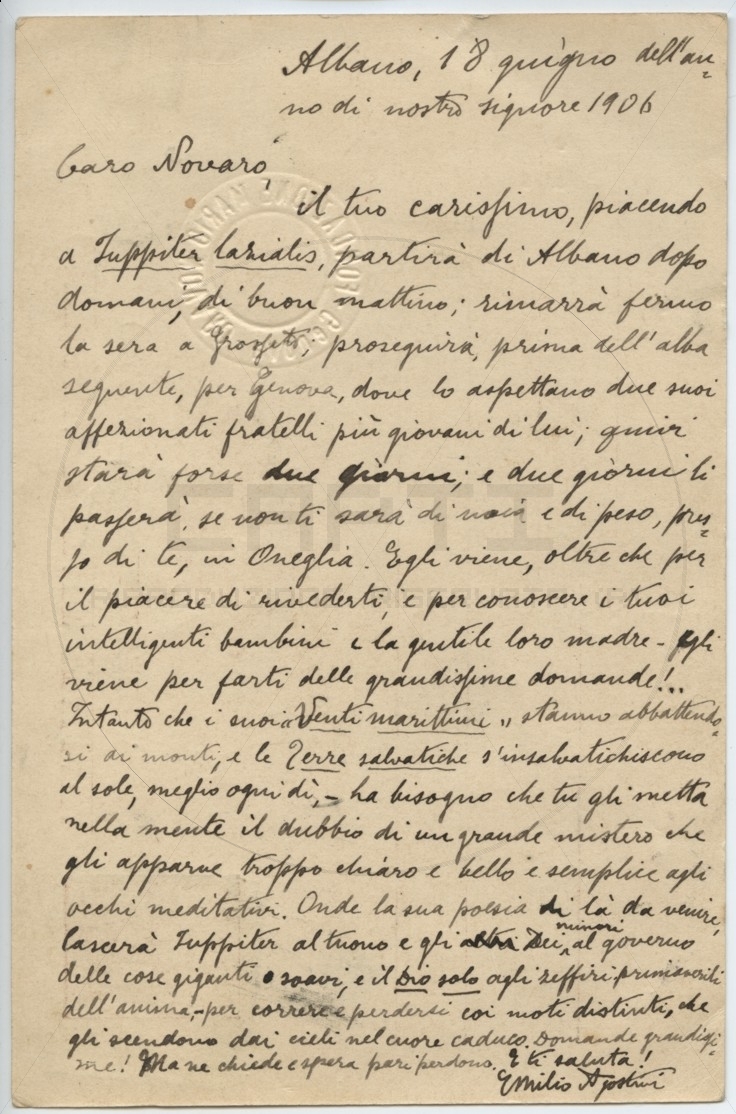 Albano, 18 giugno dell'an=
no di nostro signore 1906
Caro Novaro,
il tuo carissimo, piacendo
a Iuppiter lazialis, partirà di Albano dopo
domani, di buon mattino; rimarrà fermo
la sera a Grosseto; proseguirà, prima dell'alba
seguente, per Genova, dove lo aspettano due suoi
affezionati fratelli più giovani di lui; quivi
starà forse due giorni; e due giorni li
passerà, se non ti sarà di noia e di peso, pres=
so di te, in Oneglia. Egli viene, oltre che per
il piacere di rivederti, e per conoscere i tuoi
intelligenti bambini e la gentile loro madre - egli
viene per farti delle grandissime domande!..
Intanto che i suoi "Venti marittimi" stanno abbattendo=
si ai monti, e le Terre salvatiche s'insalvatichiscono
al sole, meglio ogni dì, - ha bisogno che tu gli metta
nella mente il dubbio di un grande mistero che
gli apparve troppo chiaro e bello e semplice agli
occhi meditativi. Onde la sua poesia di là da venire,
lascerà Iuppiter al tuono e gli Dei minori al governo
delle cose giganti e soavi, e il Dio solo agli zeffiri primaverili
dell'anima, - per correre e perdersi coi moti distinti, che
gli scendono dai cieli nel cuore caduco. Domande grandissi=
me! Ma ne chiede e spera pari perdono. E ti saluta!
Emilio Agostini